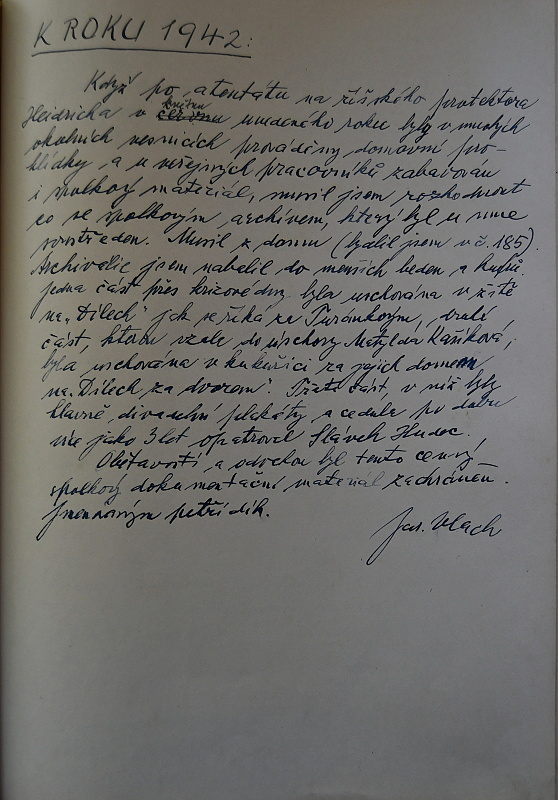 K ROKU 1942:
Když po atentátu na říšského protektora
Heidricha v květnu uvedeného roku byly v mnohých
okolních vesnicích prováděny domovní pro-
hlídky a u veřejných pracovníků zabavován
i spolkový materiál, musil jsem rozhodnout
co se spolkovým archivem, který byl u mne
soustředen. Musil z domu (bydlil jsem v č. 185).
Archivalie jsem nabalil do menších beden a kufrů.
Jedna část přes krizové dny byla uschována v žitě
na „Dílech" jak se říká ke Turánkovým, druhá
část, kterou vzala do úschovy Matylda Kašíková,
byla uschována v kukuřici za jejich domem
na „Dílech za dvorem". Třetí část, v níž byly
hlavně divadelní plakáty a cedule po dobu
více jako 3 let opatroval Slávek Hudec.
Obětavostí a odvahou byl tento cenný
spolkový dokumentační materiál zachráněn.
Jmenovaným patří dík.
Jar. Vlach